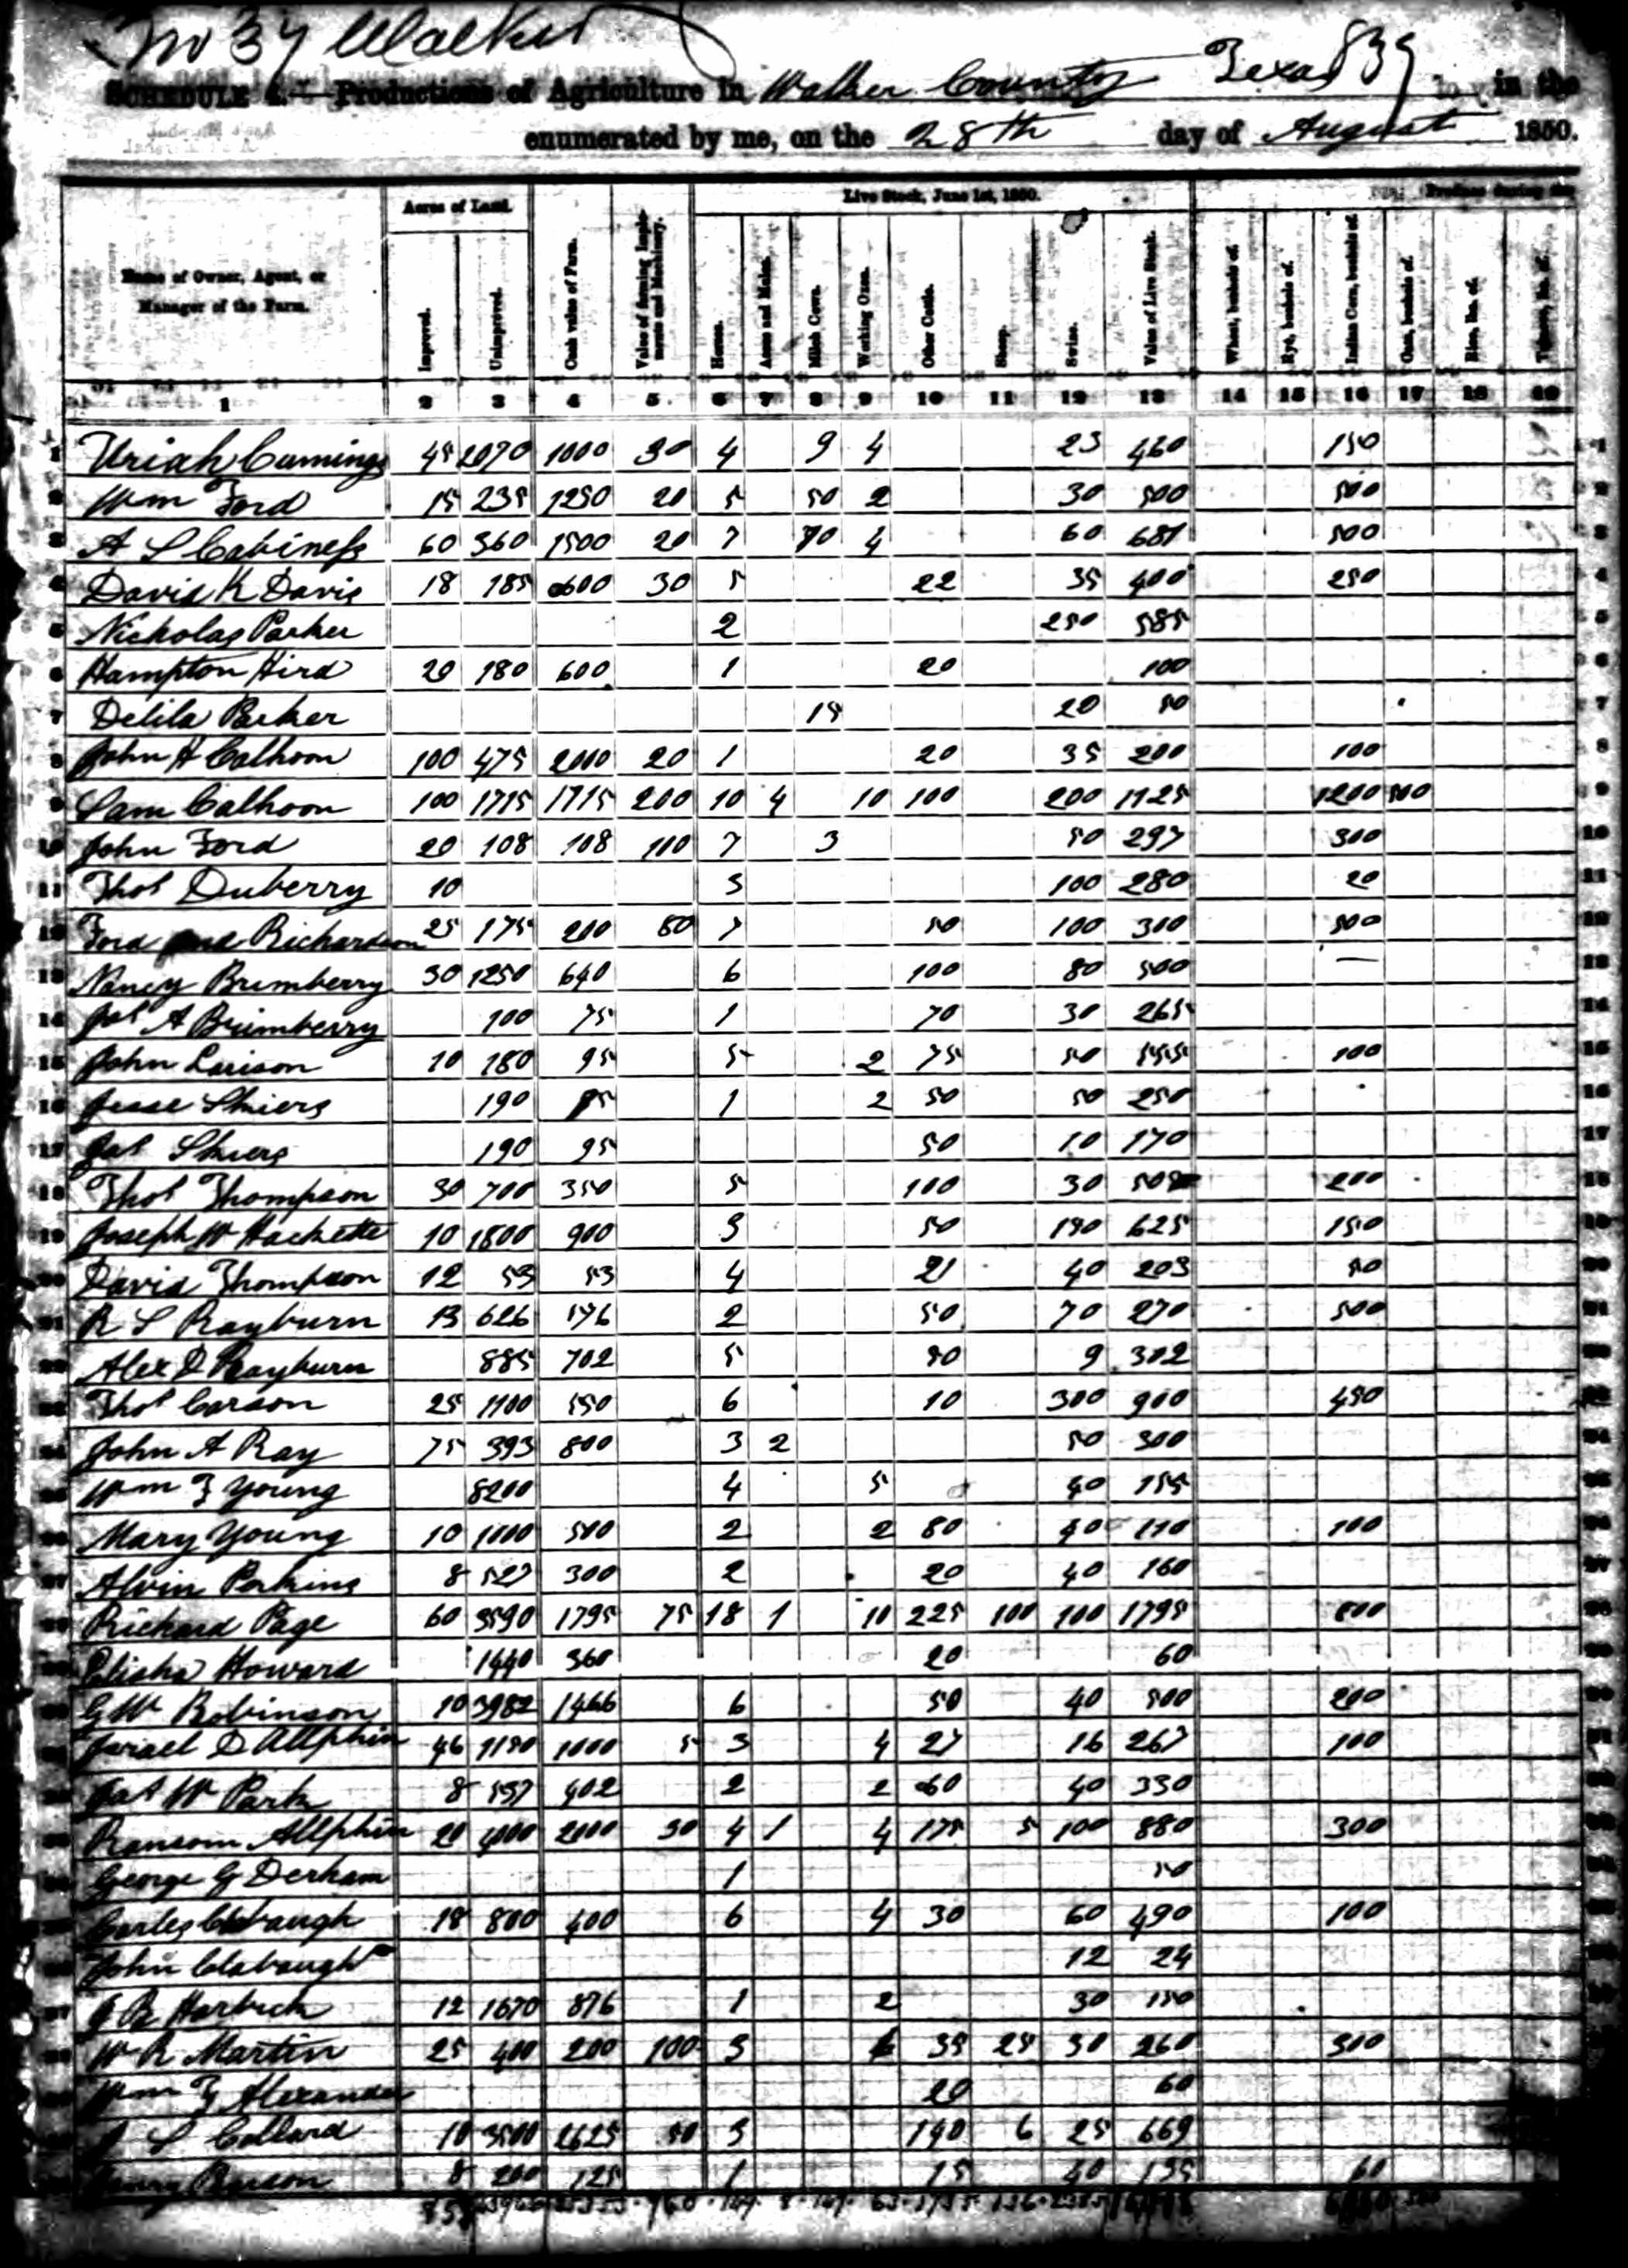 No 37 Walker
Schedule 4.—Productions of Agriculture in Walker County Texas 839 in the
enumerated by me, on the 28th day of August 1850.
Acres of Land. Live Stock, June 1st, 1850. Produce during the
Name of Owner, Agent, or Manager of the Farm. Improved. Unimproved. Cash value of Farm. Value of farming Implements and Machinery. Horses. Asses and Mules. Milch Cows. Working Oxen. Other Cattle. Sheep. Swine. Value of Live Stock. Wheat, bushels of. Rye, bushels of. Indian Corn, bushels of. Oats, bushels of. Rice, lbs. of. Tobacco, lbs. of.
1 2 3 4 5 6 7 8 9 10 11 12 13 14 15 16 17 18 19 20
1 Uriah Cumings 45 2070 1000 30 4 9 4 23 460 150 1
2 Wm Ford 15 235 1250 20 5 50 2 30 500 500 2
3 A S Cabiness 60 360 1500 20 7 70 4 60 681 500 3
4 David K Davis 18 185 600 30 5 22 35 400 250 4
5 Nickolas Parker 2 250 585 5
6 Hampton Hird 20 180 600 1 20 100 6
7 Delila Parker 15 20 50 7
8 John A Calhoon 100 475 2000 20 1 20 35 200 100 8
9 Sam Calhoon 100 1715 1715 200 10 4 10 100 200 1125 1200 500 9
10 John Ford 20 108 108 100 7 3 50 297 300 10
11 Thos Duberry 10 3 100 280 20 11
12 Ford and Richardson 25 175 200 80 7 50 100 300 500 12
13 Nancy Brumberry 30 1250 640 6 100 80 500 — 13
14 Jas A Brumberry 100 75 1 70 30 265 14
15 John Larison 10 180 95 5 2 75 50 555 100 15
16 Jesse Shiers 190 95 1 2 50 50 250 16
17 Jas Shiers 190 95 50 10 170 17
18 Thos Thompson 30 700 350 5 100 30 200 18
19 Joseph W Hackette 10 1800 900 3 50 190 625 150 19
20 David Thompson 12 53 53 4 21 40 203 50 20
21 R S Rayburn 13 626 196 2 50 70 270 500 21
22 Alex D Rayburn 885 702 5 90 9 302
23 Thos Carson 25 1100 550 6 10 300 900 450
24 John A Ray 75 393 800 3 2 50 300 24
25 Wm F Young 8200 4 5 40 155 25
26 Mary Young 10 1000 500 2 2 80 40 110 100
27 Alvin Perkins 8 527 300 2 20 40 160 27
28 Richard Page 60 3590 1795 75 18 1 10 225 100 100 1795 800 28
Elisha Howard 1440 360 20 60
G W Robinson 10 3982 1466 6 50 40 500 200
Israel D Allphin 46 1150 1000 5 3 4 27 16 267 100
Jas W Park 8 557 402 2 2 60 40 330
Ransom Allphin 20 4000 2000 30 4 1 4 175 5 100 880 300
George G Derham 1 50
Carles Clabaugh 18 800 400 6 4 30 60 490 100
John Clabaugh 12 24
G B Harbick 12 1670 876 1 2 30 150
W R Martin 25 400 200 100 3 35 25 30 260 300
Wm F Alexander 20 60
S Collard 10 3500 2625 50 3 190 6 25 669
Benson 8 200 125 1 15 40 135 60